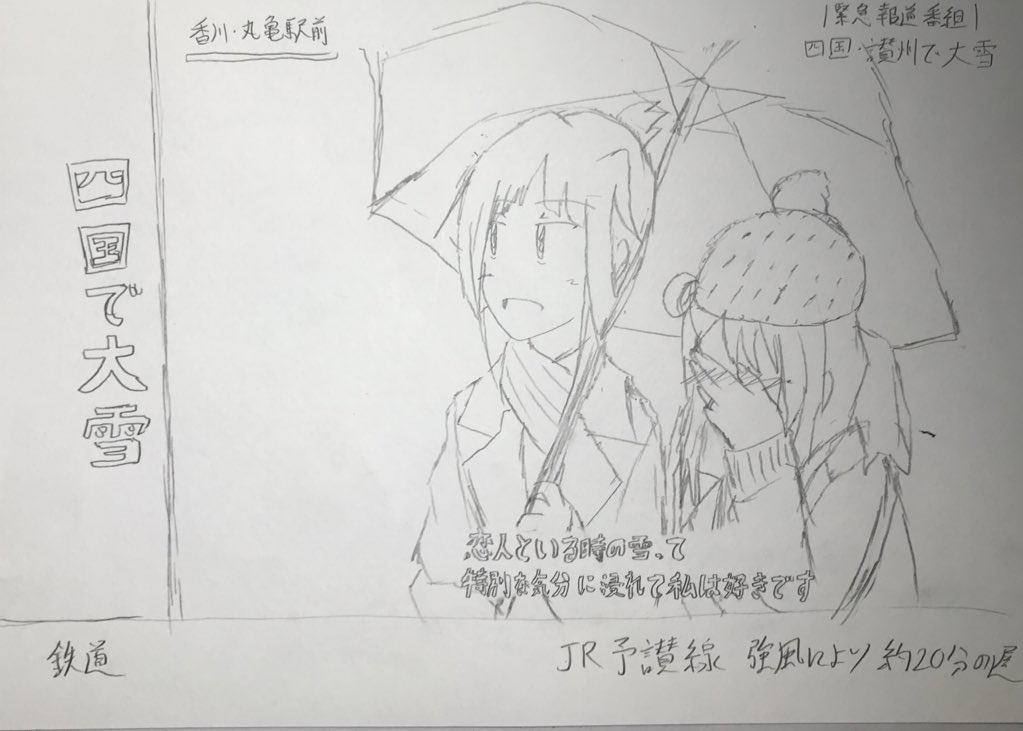 香川・丸亀駅前
緊急報道番組
四国・讃州で大雪
四国で大雪
恋人といる時の雪、て
特別な気分に浸れて私は好きです
鉄道
JR予讃線 強風により約20分の遅